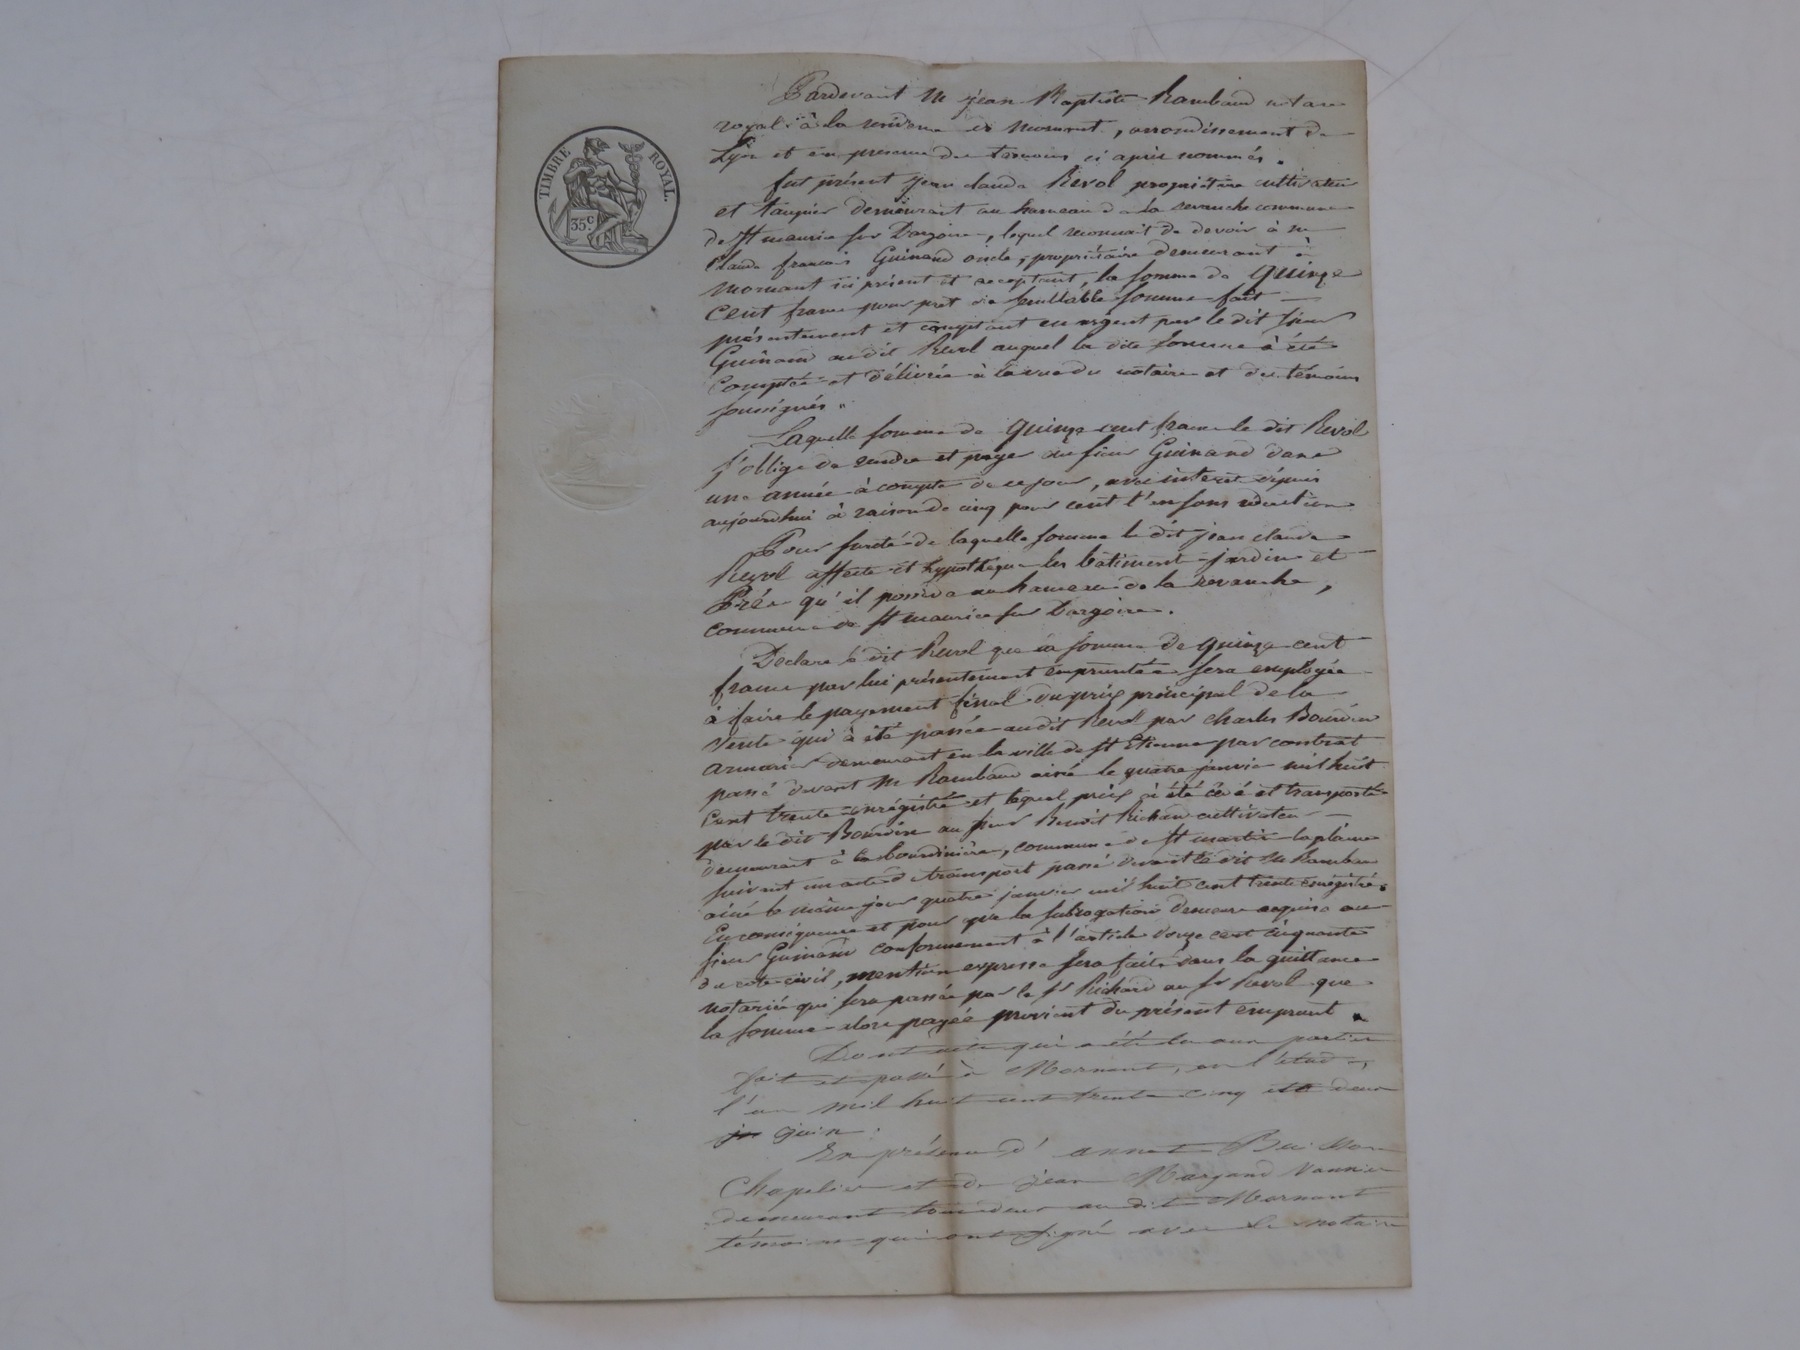 TIMBRE ROYAL
35c.
Pardevant Me jean Baptiste Rambaud notaire
royal à la residence de Mornant, arrondissement de
Lyon et en presence des temoins ci après nommés.
fut présent jean claude Revol propriétaire cultivateur
et demeurant au hameau de la revanche commune
de St maurice sur Dargoire, lequel reconnait de devoir à mr
Claude francois Guinand oncle, propriétaire demeurant à
Mornant ici présent et acceptant, la somme de quinze
Cent francs pour prêt de semblable somme fait
présentement et comptant en argent par le dit sieur
Guinand au dit Revol auquel la dite somme à été
Comptée et délivrée à la vue du notaire et des témoins
soussignés.
Laquelle somme de quinze cent francs le dit Revol
s'oblige de rendre et payer au sieur Guinand dans
une année à compter de ce jour, avec interet depuis
aujourdhui à raison de cinq pour cent l'an sans réduction
Pour sureté de laquelle somme le dit jean claude
Revol affecte et hypothèque les bâtiment jardin et
Prés qu'il possède au hameau de la revanche,
commune de St maurice sur Dargoire.
Déclare le dit Revol que la somme de quinze cent
francs par lui présentement empruntée sera employée
à faire le payement final du prix principal de la
Vente qui à été passée audit Revol par charles Bourdin
armurier demeurant en la ville de St Etienne par contrat
passé devant Me Rambaud ainé le quatre janvier mil huit
Cent trente enrégistré et lequel prix à été cédé et transporté
par le dit Bourdin au sieur Benoit Richard cultivateur
demeurant à la bourdinière, commune de St martin laplaine
suivant un acte de transport passé devant le dit Me Rambaud
ainé le même jour quatre janvier mil huit cent trente enrégistré.
En conséquence et pour que la subrogation demeure acquise au
sieur Guinand conformement à l'article douze cent cinquante
du code civil, mention expresse sera faite dans la quittance
notariée qui sera passée par le sr Richard au sr Revol que
la somme alors payée provient du présent emprunt.
Dont acte qui a été lu aux parties
fait et passé à Mornant, en l'étude,
l'an mil huit cent trente cinq et le deux
juin.
En présence d'annet Buisson
Chapelier et de jean Margand Vannier
demeurant tous deux au dit Mornant
témoins qui ont signé avec le notaire